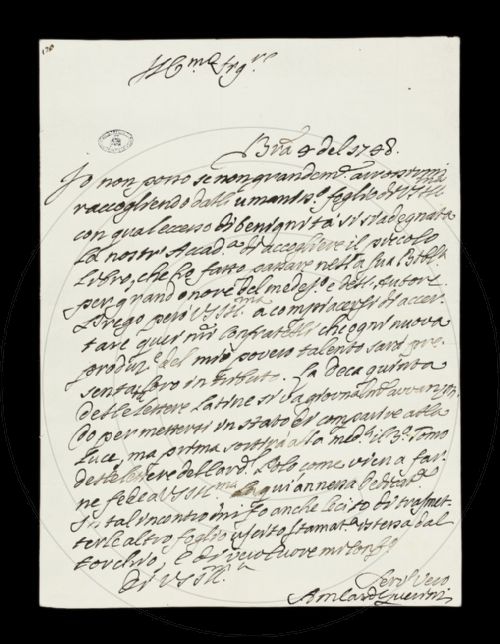 170
Ill.mo Sig.re
Bra 9 del 1748.
Io non posso se non grandem.e arrossirmi
raccogliendo dall' umaniss.o foglio di VS Ill.ma
con qual eccesso di benignità si sia degnata
la nostra Accad.a di accogliere il piccolo
Libro, che hò fatto passare nella sua Bibl.a
per grand'onore del medes.o e dell'Autore.
Prego però VS Ill.ma a compiacersi di accer-
tare questi miei Confratelli che ogni nuova
produz.e del mio povero talento sarà pre-
sentata loro in tributo. La deca quinta
delle lettere Latine si và giornalm.e avanzan-
do per mettersi in stato di comparire alla
Luce, ma prima sortirà alla med.a il 3.o Tomo
delle lettere del Card. Polo come viene a far-
ne fede a VS Ill.ma la qui annessa Dedicat.a
In tal incontro mi fo anche lecito di trasmet-
terle altro foglio uscito stamat.a istessa dal
torchio, E di vero cuore mi conf.o
Di VS Ill.ma
Serv.e Vero
A M Card Querini